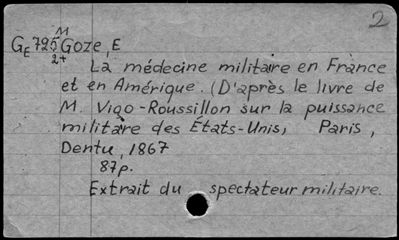 2
M
GE 725 Goze, E
2+
La médecine militaire en France
et en Amérique. (D'après le livre de
M. Vigo-Roussillon sur la puissance
militaire des États-Unis, Paris,
Dentu, 1867
87p.
Extrait du spectateur militaire.